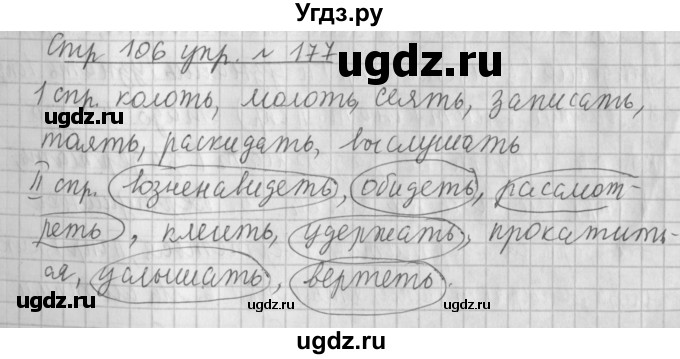 Угдз.ру
Стр 106 упр. № 177
ugdz.ru
1 спр. колоть, молоть, сеять, записать,
таять, раскидать, выслушать
ugdz.ru
II спр. возненавидеть, обидеть, рассмот-
реть, клеить, удержать, прокатить-
ugdz.ru ugdz.ru
ся, услышать, вертеть.
ugdz.ru ugdz.ru
ugdz.ru